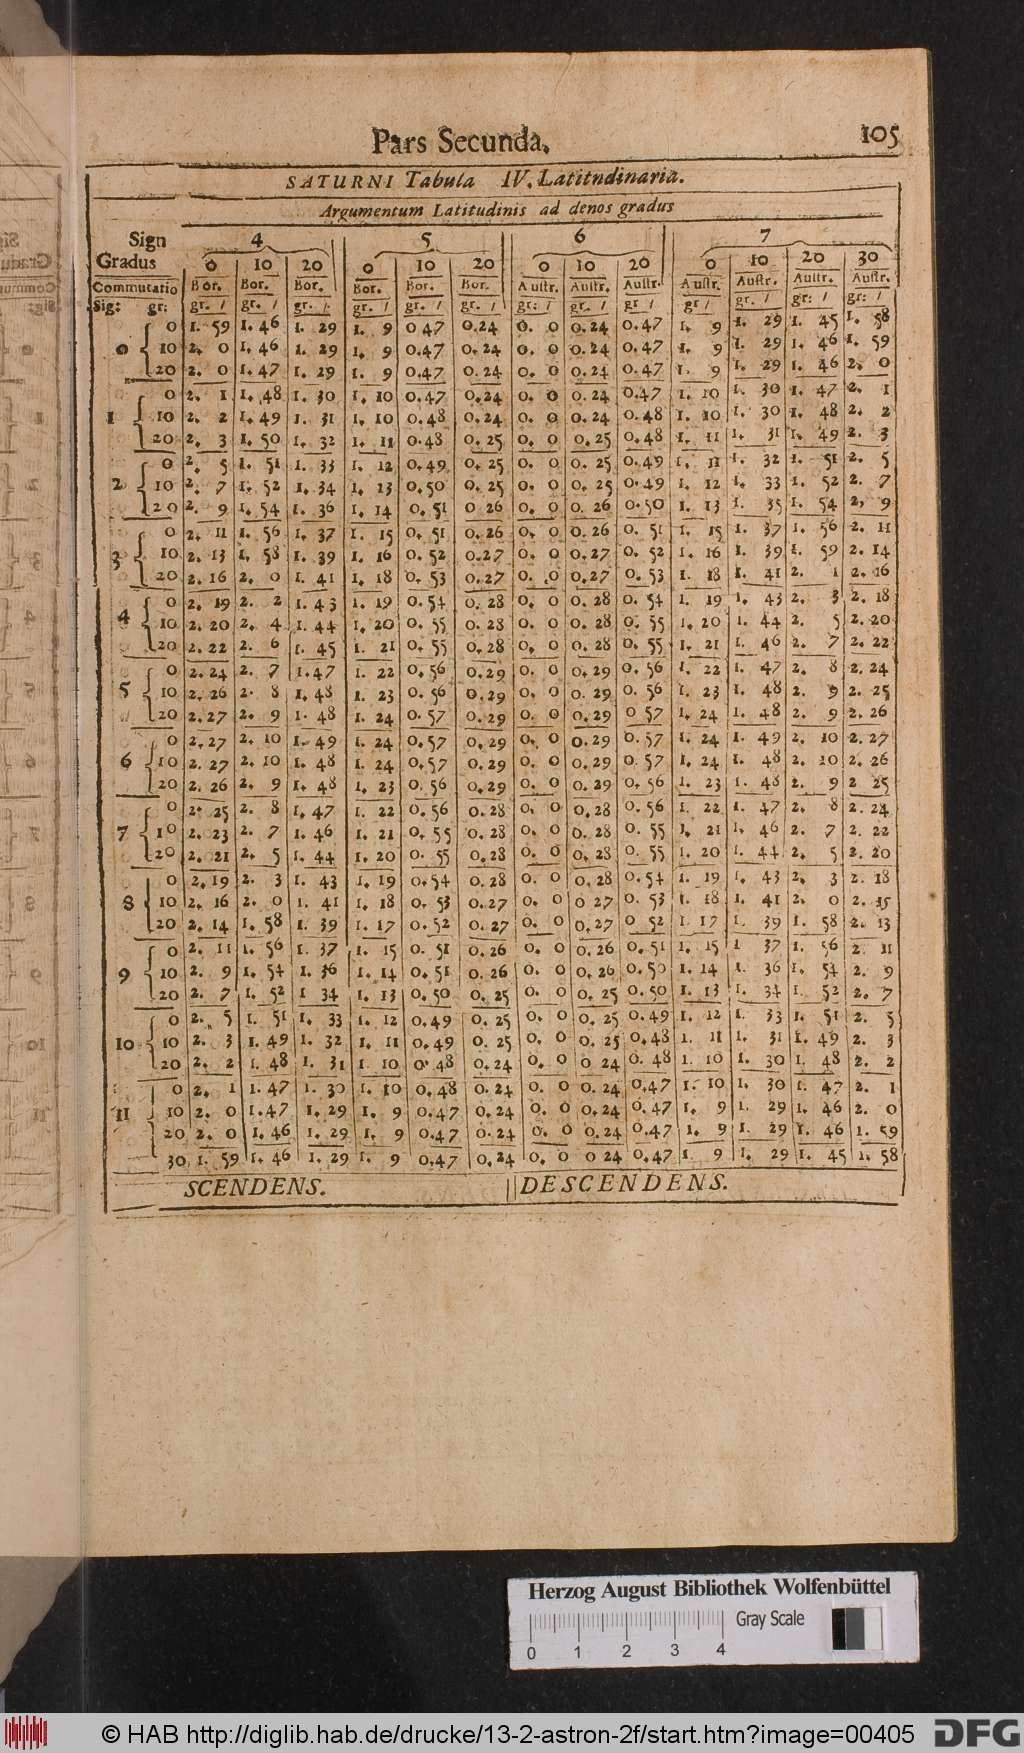 Pars Secunda. 105
SATURNI Tabula IV. Latitndinaria.
Argumentum Latitudinis ad denos gradus
Sign 4 5 6 7
Gradus 0 10 20 0 10 20 0 10 20 0 10 20 30
Commutatio Bor. Bor. Bor. Bor. Bor. Bor. Austr. Austr. Austr. Austr. Austr. Austr. Austr.
Sig: gr: gr. / gr. / gr. / gr. / gr. / gr. / gr: / gr. / gr / gr / gr. / gr: / gr: /
0 1. 59 1. 46 1. 29 1. 9 0 47 0.24 0. 0 0.24 0.47 1. 9 1. 29 1. 45 1. 58
0 10 2. 0 1.46 1. 29 1. 9 0.47 0.24 0. 0 0.24 0.47 1. 9 1. 29 1. 46 1. 59
20 2. 0 1.47 1. 29 1. 9 0.47 0. 24 0. 0 0. 24 0.47 1. 9 1. 29 1. 46 2. 0
0 2. 1 1. 48 1. 30 1. 10 0.47 0.24 0. 0 0. 24 0.47 1. 10 1. 30 1. 47 2. 1
1 10 2. 2 1.49 1. 31 1. 10 0.48 0.24 0. 0 0.24 0.48 1. 10 1. 30 1. 48 2. 2
20 2. 3 1. 50 1. 32 1. 11 0.48 0. 25 0. 0 0. 25 0.48 1. 11 1. 31 1. 49 2. 3
0 2. 5 1. 51 1. 33 1. 12 0.49 0. 25 0. 0 0. 25 0.49 1. 11 1. 32 1. 51 2. 5
2 10 2. 7 1. 52 1. 34 1. 13 0.50 0. 25 0. 0 0. 25 0.49 1. 12 1. 33 1. 52 2. 7
20 2. 9 1. 54 1. 36 1. 14 0. 51 0 26 0. 0 0. 26 0.50 1. 13 1. 35 1. 54 2. 9
0 2. 11 1. 56 1. 37 1. 15 0. 51 0.26 0. 0 0.26 0. 51 1. 15 1. 37 1. 56 2. 11
3 10 2. 13 1. 58 1. 39 1. 16 0. 52 0.27 0. 0 0.27 0. 52 1. 16 1. 39 1. 59 2. 14
20 2. 16 2. 0 1. 41 1. 18 0. 53 0.27 0. 0 0.27 0. 53 1. 18 1. 41 2. 1 2. 16
0 2. 19 2. 2 1. 43 1. 19 0. 54 0. 28 0. 0 0. 28 0. 54 1. 19 1. 43 2. 3 2. 18
4 10 2. 20 2. 4 1. 44 1. 20 0. 55 0. 28 0. 0 0. 28 0. 55 1. 20 1. 44 2. 5 2. 20
20 2. 22 2. 6 1. 45 1. 21 0. 55 0.28 0. 0 0. 28 0. 55 1. 21 1. 46 2. 7 2. 22
0 2. 24 2. 7 1.47 1. 22 0. 56 0.29 0. 0 0. 29 0. 56 1. 22 1. 47 2. 8 2. 24
5 10 2. 26 2. 8 1. 48 1. 23 0. 56 0.29 0. 0 0. 29 0. 56 1. 23 1. 48 2. 9 2. 25
20 2. 27 2. 9 1. 48 1. 24 0. 57 0.29 0. 0 0.29 0 57 1. 24 1. 48 2. 9 2. 26
0 2. 27 2. 10 1. 49 1. 24 0.57 0.29 0. 0 0.29 0.57 1. 24 1. 49 2. 10 2. 27
6 10 2. 27 2. 10 1. 48 1. 24 0.57 0.29 0. 0 0.29 0. 57 1. 24 1. 48 2. 10 2. 26
20 2. 26 2. 9 1. 48 1. 23 0. 56 0.29 0. 0 0.29 0. 56 1. 23 1. 48 2. 9 2 25
0 2. 25 2. 8 1. 47 1. 22 0.56 0.28 0. 0 0.28 0. 56 1. 22 1. 47 2. 8 2. 24
7 10 2. 23 2. 7 1. 46 1. 21 0. 55 0. 28 0. 0 0. 28 0. 55 1. 21 1. 46 2. 7 2. 22
20 2. 21 2. 5 1. 44 1. 20 0. 55 0.28 0. 0 0. 28 0. 55 1. 20 1. 44 2. 5 2. 20
0 2. 19 2. 3 1. 43 1. 19 0.54 0. 28 0. 0 0. 28 0.54 1. 19 1. 43 2. 3 2. 18
8 10 2. 16 2. 0 1. 41 1. 18 0. 53 0.27 0. 0 0 27 0. 53 1. 18 1. 41 2. 0 2. 15
20 2. 14 1. 58 1. 39 1. 17 0.52 0. 27 0. 0 0.27 0 52 1. 17 1. 39 1. 58 2. 13
0 2. 11 1. 56 1. 37 1. 15 0. 51 0.26 0. 0 0.26 0.51 1. 15 1 37 1. 56 2. 11
9 10 2. 9 1. 54 1. 36 1. 14 0. 51 0. 26 0. 0 0. 26 0. 50 1. 14 1. 36 1. 54 2. 9
20 2. 7 1. 52 1 34 1. 13 0. 50 0. 25 0. 0 0. 25 0. 50 1. 13 1. 34 1. 52 2. 7
0 2. 5 1. 51 1. 33 1. 12 0.49 0. 25 0. 0 0. 25 0.49 1. 12 1. 33 1. 51 2. 5
10 10 2. 3 1. 49 1. 32 1. 11 0.49 0. 25 0. 0 0. 25 0.48 1. 11 1. 31 1. 49 2. 3
20 2. 2 1. 48 1. 31 1. 10 0. 48 0.24 0. 0 0 24 0. 48 1. 10 1. 30 1. 48 2. 2
0 2. 1 1. 47 1. 30 1. 10 0.48 0. 24 0. 0 0. 24 0.47 1. 10 1. 30 1. 47 2. 1
11 10 2. 0 1.47 1. 29 1. 9 0.47 0.24 0. 0 0.24 0. 47 1. 9 1. 29 1. 46 2. 0
20 2. 0 1. 46 1. 29 1. 9 0.47 0.24 0. 0 0.24 0.47 1. 9 1. 29 1. 46 1. 59
30 1. 59 1. 46 1. 29 1. 9 0.47 0.24 0. 0 0 24 0.47 1. 9 1. 29 1. 45 1. 58
SCENDENS. DESCENDENS.
Herzog August Bibliothek Wolfenbüttel
Gray Scale
0 1 2 3 4
© HAB http://diglib.hab.de/drucke/13-2-astron-2f/start.htm?image=00405 DFG